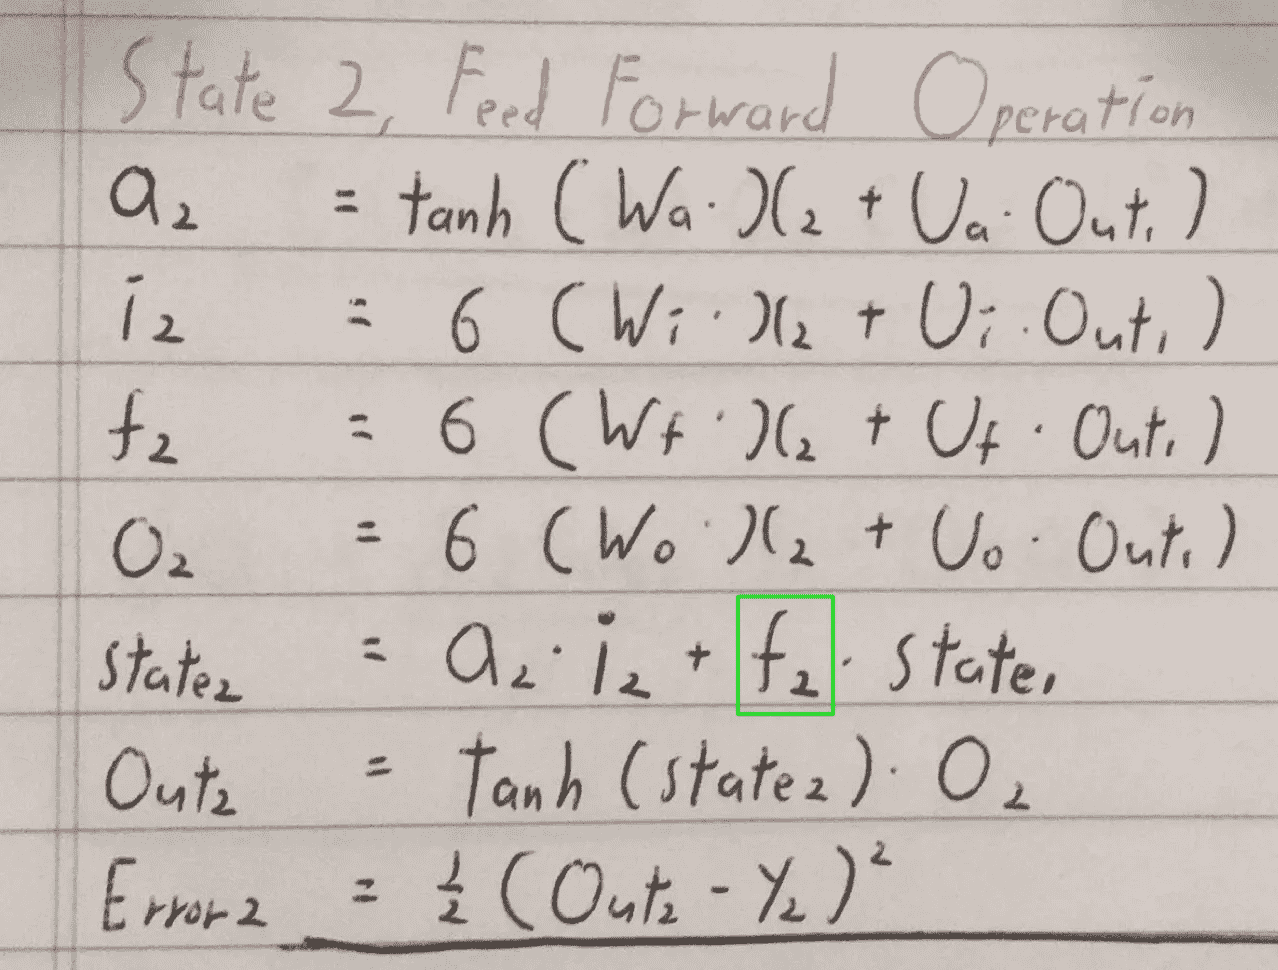 State 2, Feed Forward Operation
a₂ = tanh (Wa · X₂ + Ua · Out₁)
i₂ = 6 (Wi · X₂ + Ui · Out₁)
f₂ = 6 (Wf · X₂ + Uf · Out₁)
O₂ = 6 (Wo · X₂ + Uo · Out₁)
state₂ = a₂ · i₂ + f₂ · state₁
Out₂ = Tanh (state₂) · O₂
Error₂ = ½ (Out₂ - Y₂)²